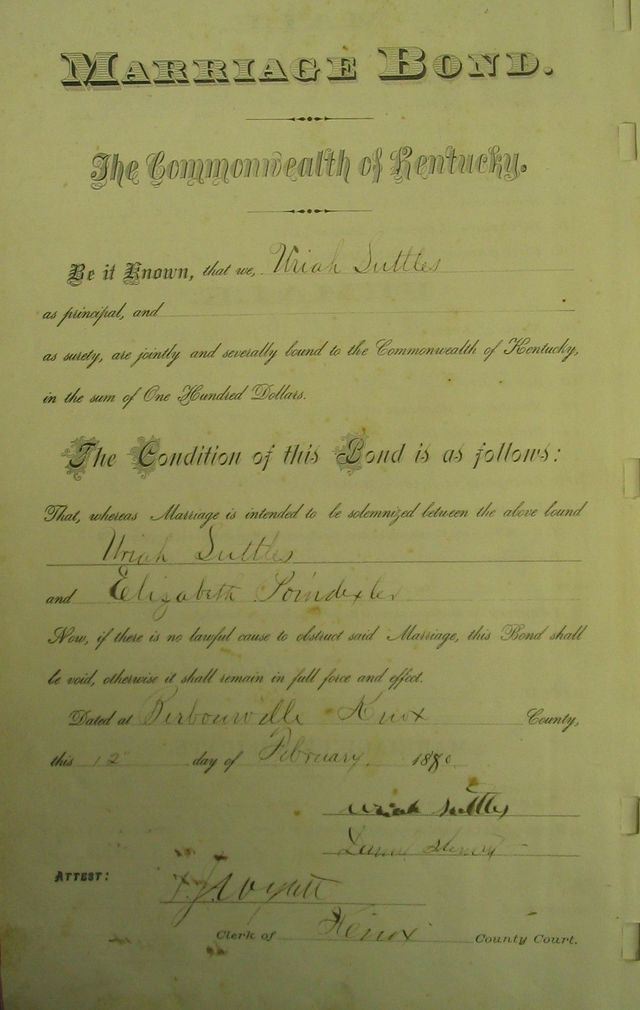 MARRIAGE BOND.
The Commonwealth of Kentucky.
Be it Known, that we, Uriah Suttles
as principal, and
as surety, are jointly and severally bound to the Commonwealth of Kentucky,
in the sum of One Hundred Dollars.
The Condition of this Bond is as follows:
That, whereas Marriage is intended to be solemnized between the above bound
Uriah Suttles
and Elizabeth Poindexter
Now, if there is no lawful cause to obstruct said Marriage, this Bond shall
be void, otherwise it shall remain in full force and effect.
Dated at Barbourville Knox County,
this 12 day of February 1880
Uriah Suttles
ATTEST:
Wyatt
Clerk of Knox County Court.